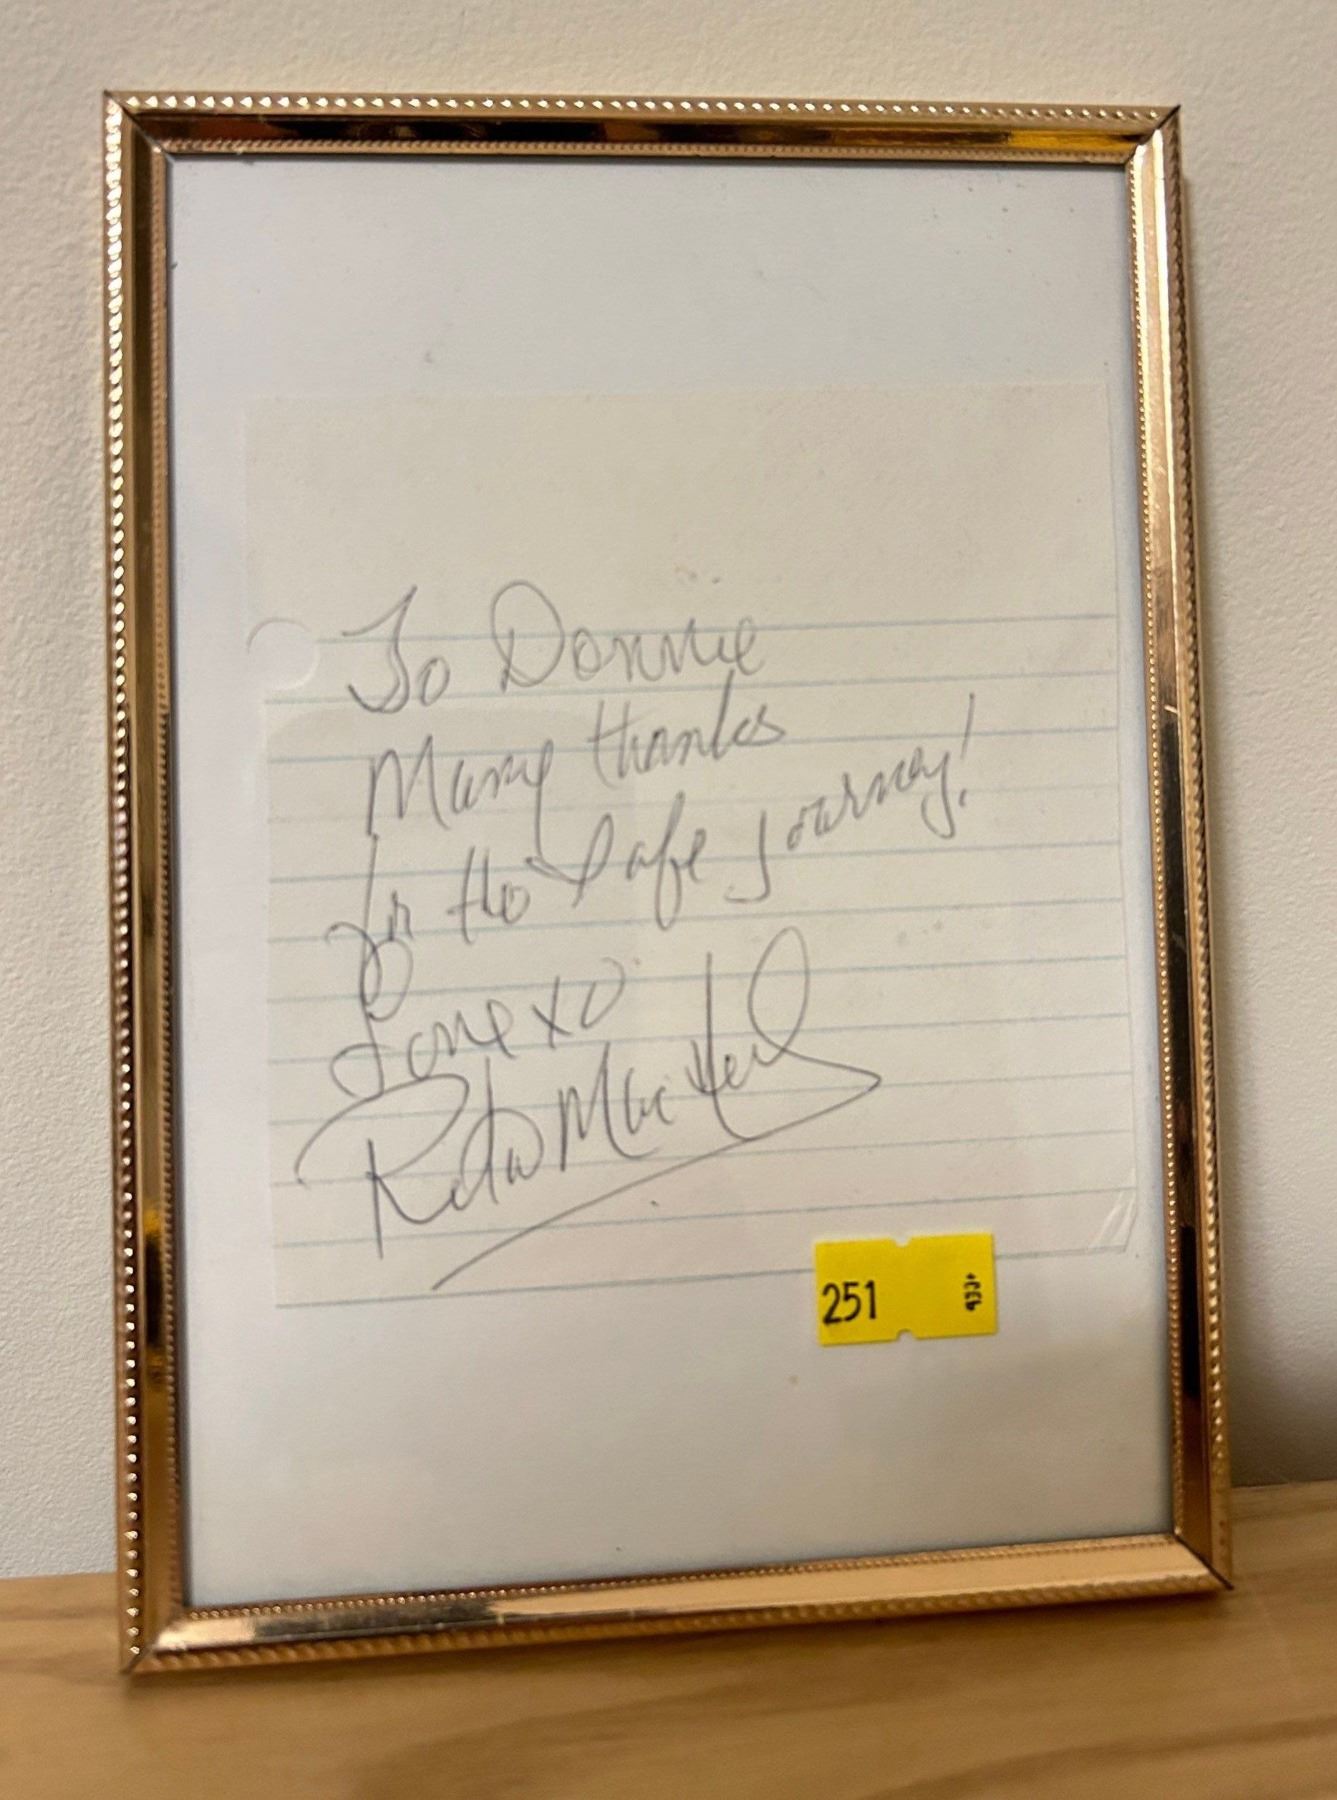 To Donnie
Many thanks
for the safe journey!
Love xo
Rita MacNeil
251